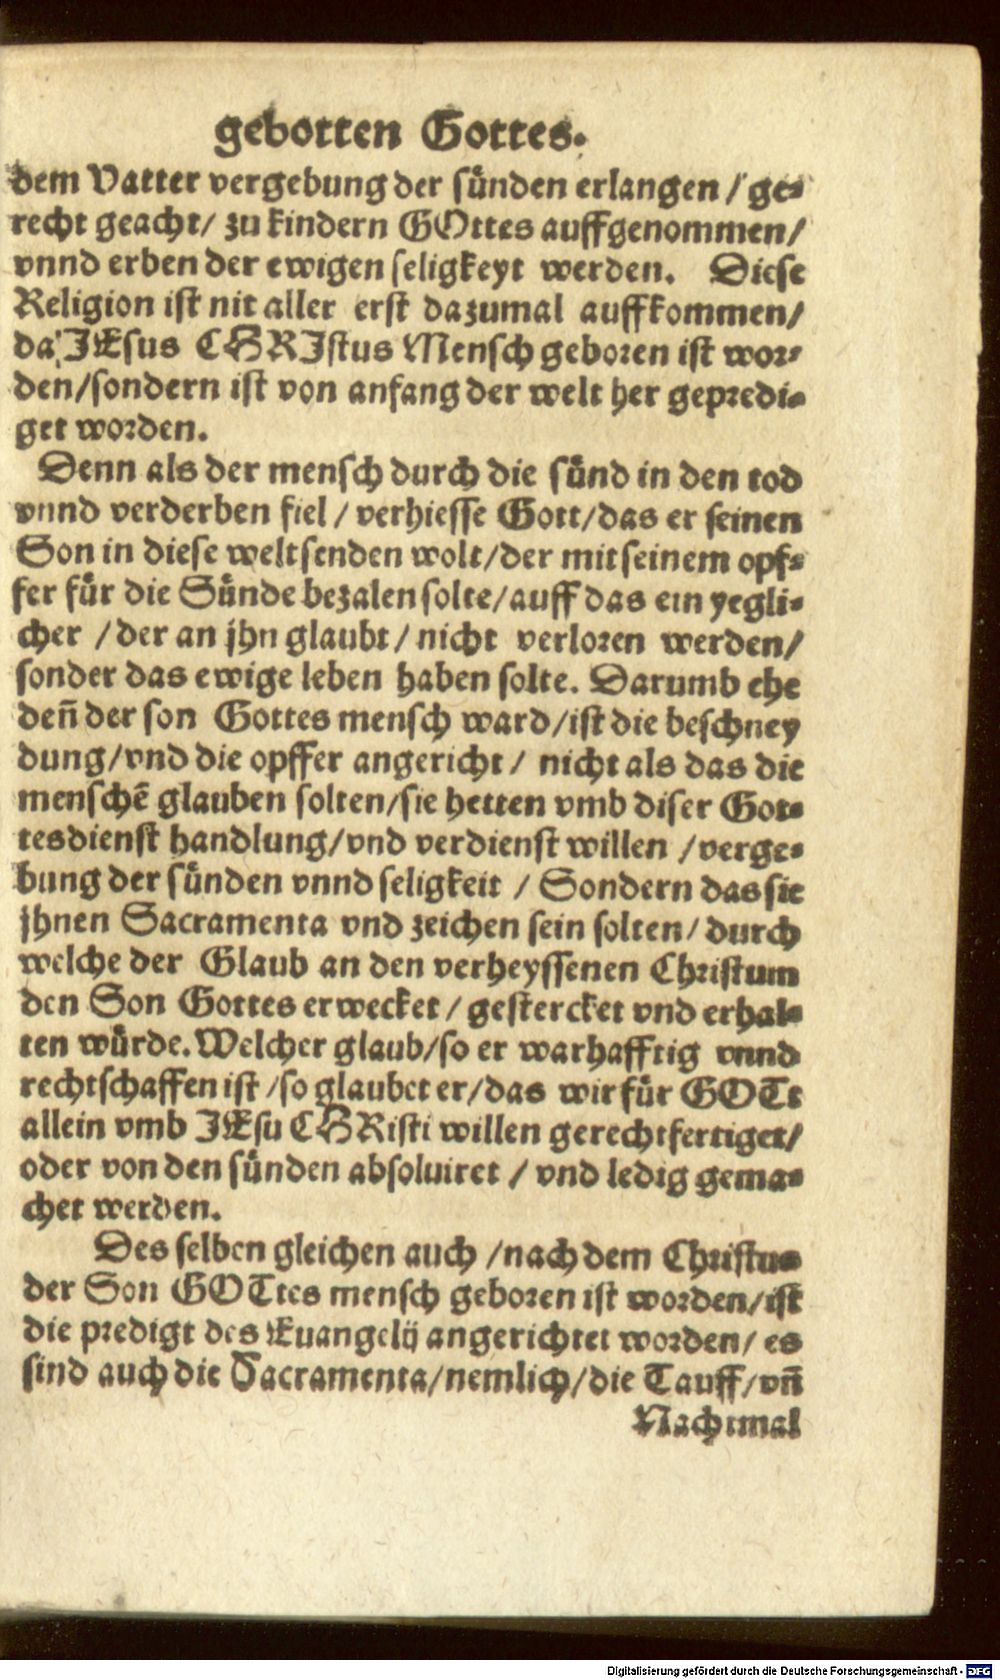 gebotten Gottes.
dem Vatter vergebung der sünden erlangen / ge-
recht geacht/ zu kindern GOttes auffgenommen/
vnnd erben der ewigen seligkeyt werden. Diese
Religion ist nit aller erst dazumal auffkommen/
da JEsus CHRIstus Mensch geboren ist wor-
den/sondern ist von anfang der welt her gepredi-
get worden.
Denn als der mensch durch die sünd in den tod
vnnd verderben fiel / verhiesse Gott/das er seinen
Son in diese welt senden wolt/der mit seinem opf-
fer für die Sünde bezalen solte/auff das ein yegli-
cher /der an jhn glaubt/ nicht verloren werden/
sonder das ewige leben haben solte. Darumb ehe
deñ der son Gottes mensch ward/ist die beschney
dung/vnd die opffer angericht/ nicht als das die
menschẽ glauben solten/sie hetten vmb diser Got-
tesdienst handlung/vnd verdienst willen /verge-
bung der sünden vnnd seligkeit / Sondern das sie
jhnen Sacramenta vnd zeichen sein solten/ durch
welche der Glaub an den verheyssenen Christum
den Son Gottes erwecket / gestercket vnd erhal-
ten würde. Welcher glaub/so er warhafftig vnnd
rechtschaffen ist /so glaubet er/das wir für GOTt
allein vmb JEsu CHRisti willen gerechtfertiget/
oder von den sünden absoluiret / vnd ledig gema-
chet werden.
Des selben gleichen auch /nach dem Christus
der Son GOTtes mensch geboren ist worden/ist
die predigt des Euangelij angerichtet worden/ es
sind auch die Sacramenta/nemlich/die Tauff/vñ
Nachtmal
Digitalisierung gefördert durch die Deutsche Forschungsgemeinschaft - DFG